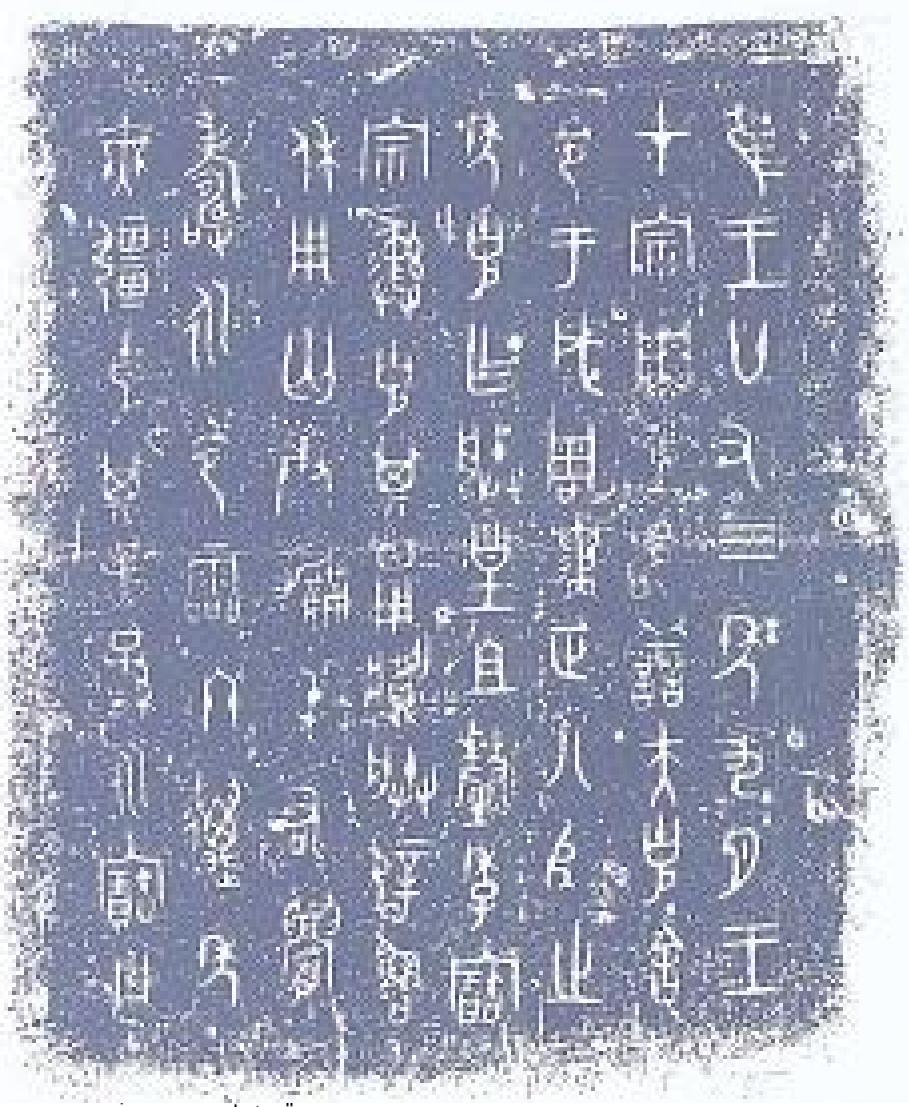 隹王廿又三年九月王
才宗周王命善夫克舍
令于成周遹正八𠂤之
年克乍朕皇且釐季寶
宗彝克其日用䵼朕辟魯
休用匄康屯右眉
壽永令霝冬邁年
無疆克其子子孫孫永寶用